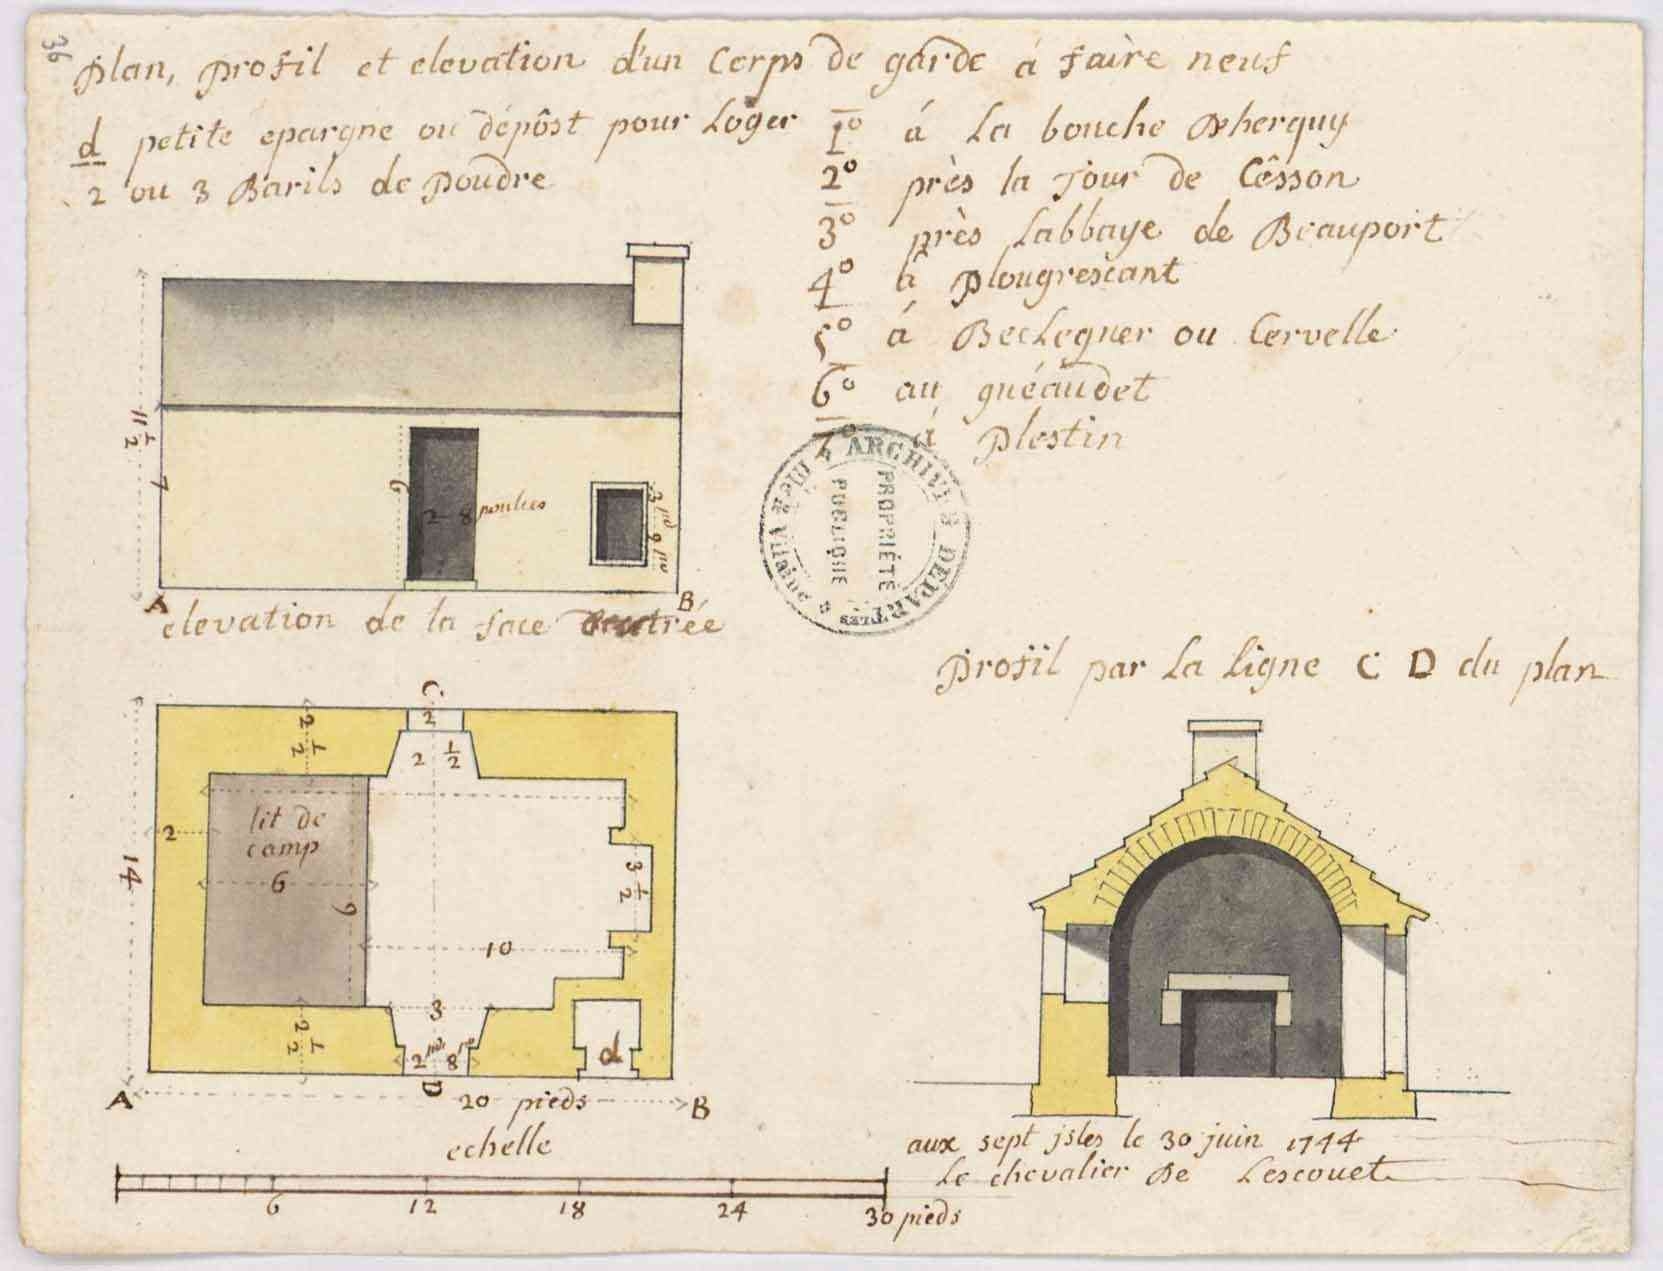 36
plan, profil et elevation d'un Corps de garde á faire neuf
d petite epargne ou dépôst pour Loger
2 ou 3 Barils de poudre
1º á La bouche Dherquy
2º près la Tour de Cêsson
3º près Labbaye de Beauport
4º à plougrescant
5º á BecLeguer ou Cervelle
6º au guéaudet
7º á plestin
ARCHIVES DEPARTLES
Ille & Vilaine
PROPRIÉTÉ
PUBLIQUE
11 1/2
7
6
2 8 pouces
3 pds 9 po
A B
elevation de la face dentrée
C
2
2 1/2
2 1/2
lit de
camp
2
6
9
14
3 1/2
10
2 1/2
3
2 pds 8 po
d
D
A 20 pieds B
echelle
6 12 18 24 30 pieds
Profil par La Ligne C D du plan
aux sept isles le 30 juin 1744
Le chevalier De Lescouet